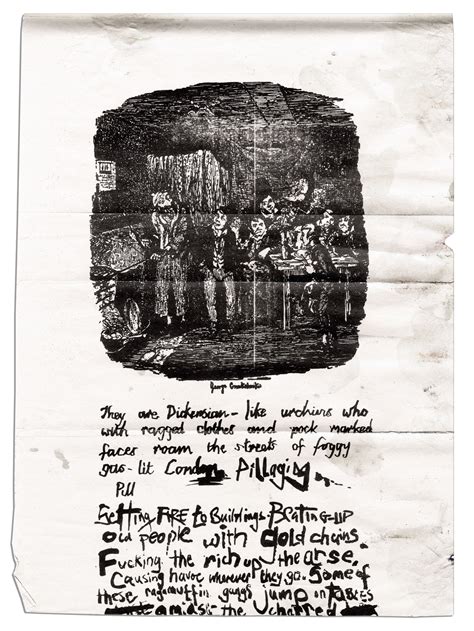 George Cruikshank
They are Dickensian – like urchins who
with ragged clothes and pock marked
faces roam the streets of foggy
gas-lit London Pillaging
Pill
Setting FIRE to Buildings BEATING-UP
old people with gold chains.
Fucking the rich up the arse.
Causing havoc wherever they go. Some of
these ragamuffin gangs jump on TABLES
amidst the charred